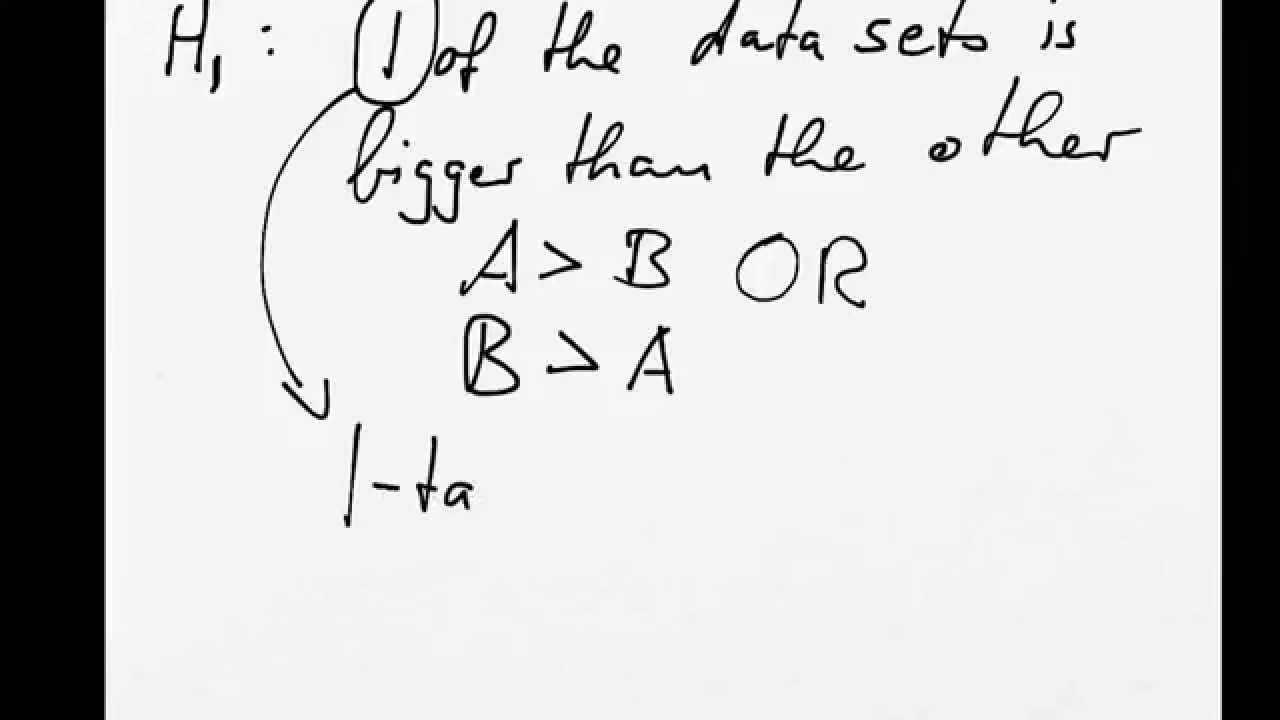 H₁ : 1 of the data sets is
bigger than the other
A > B OR
B > A
1-ta